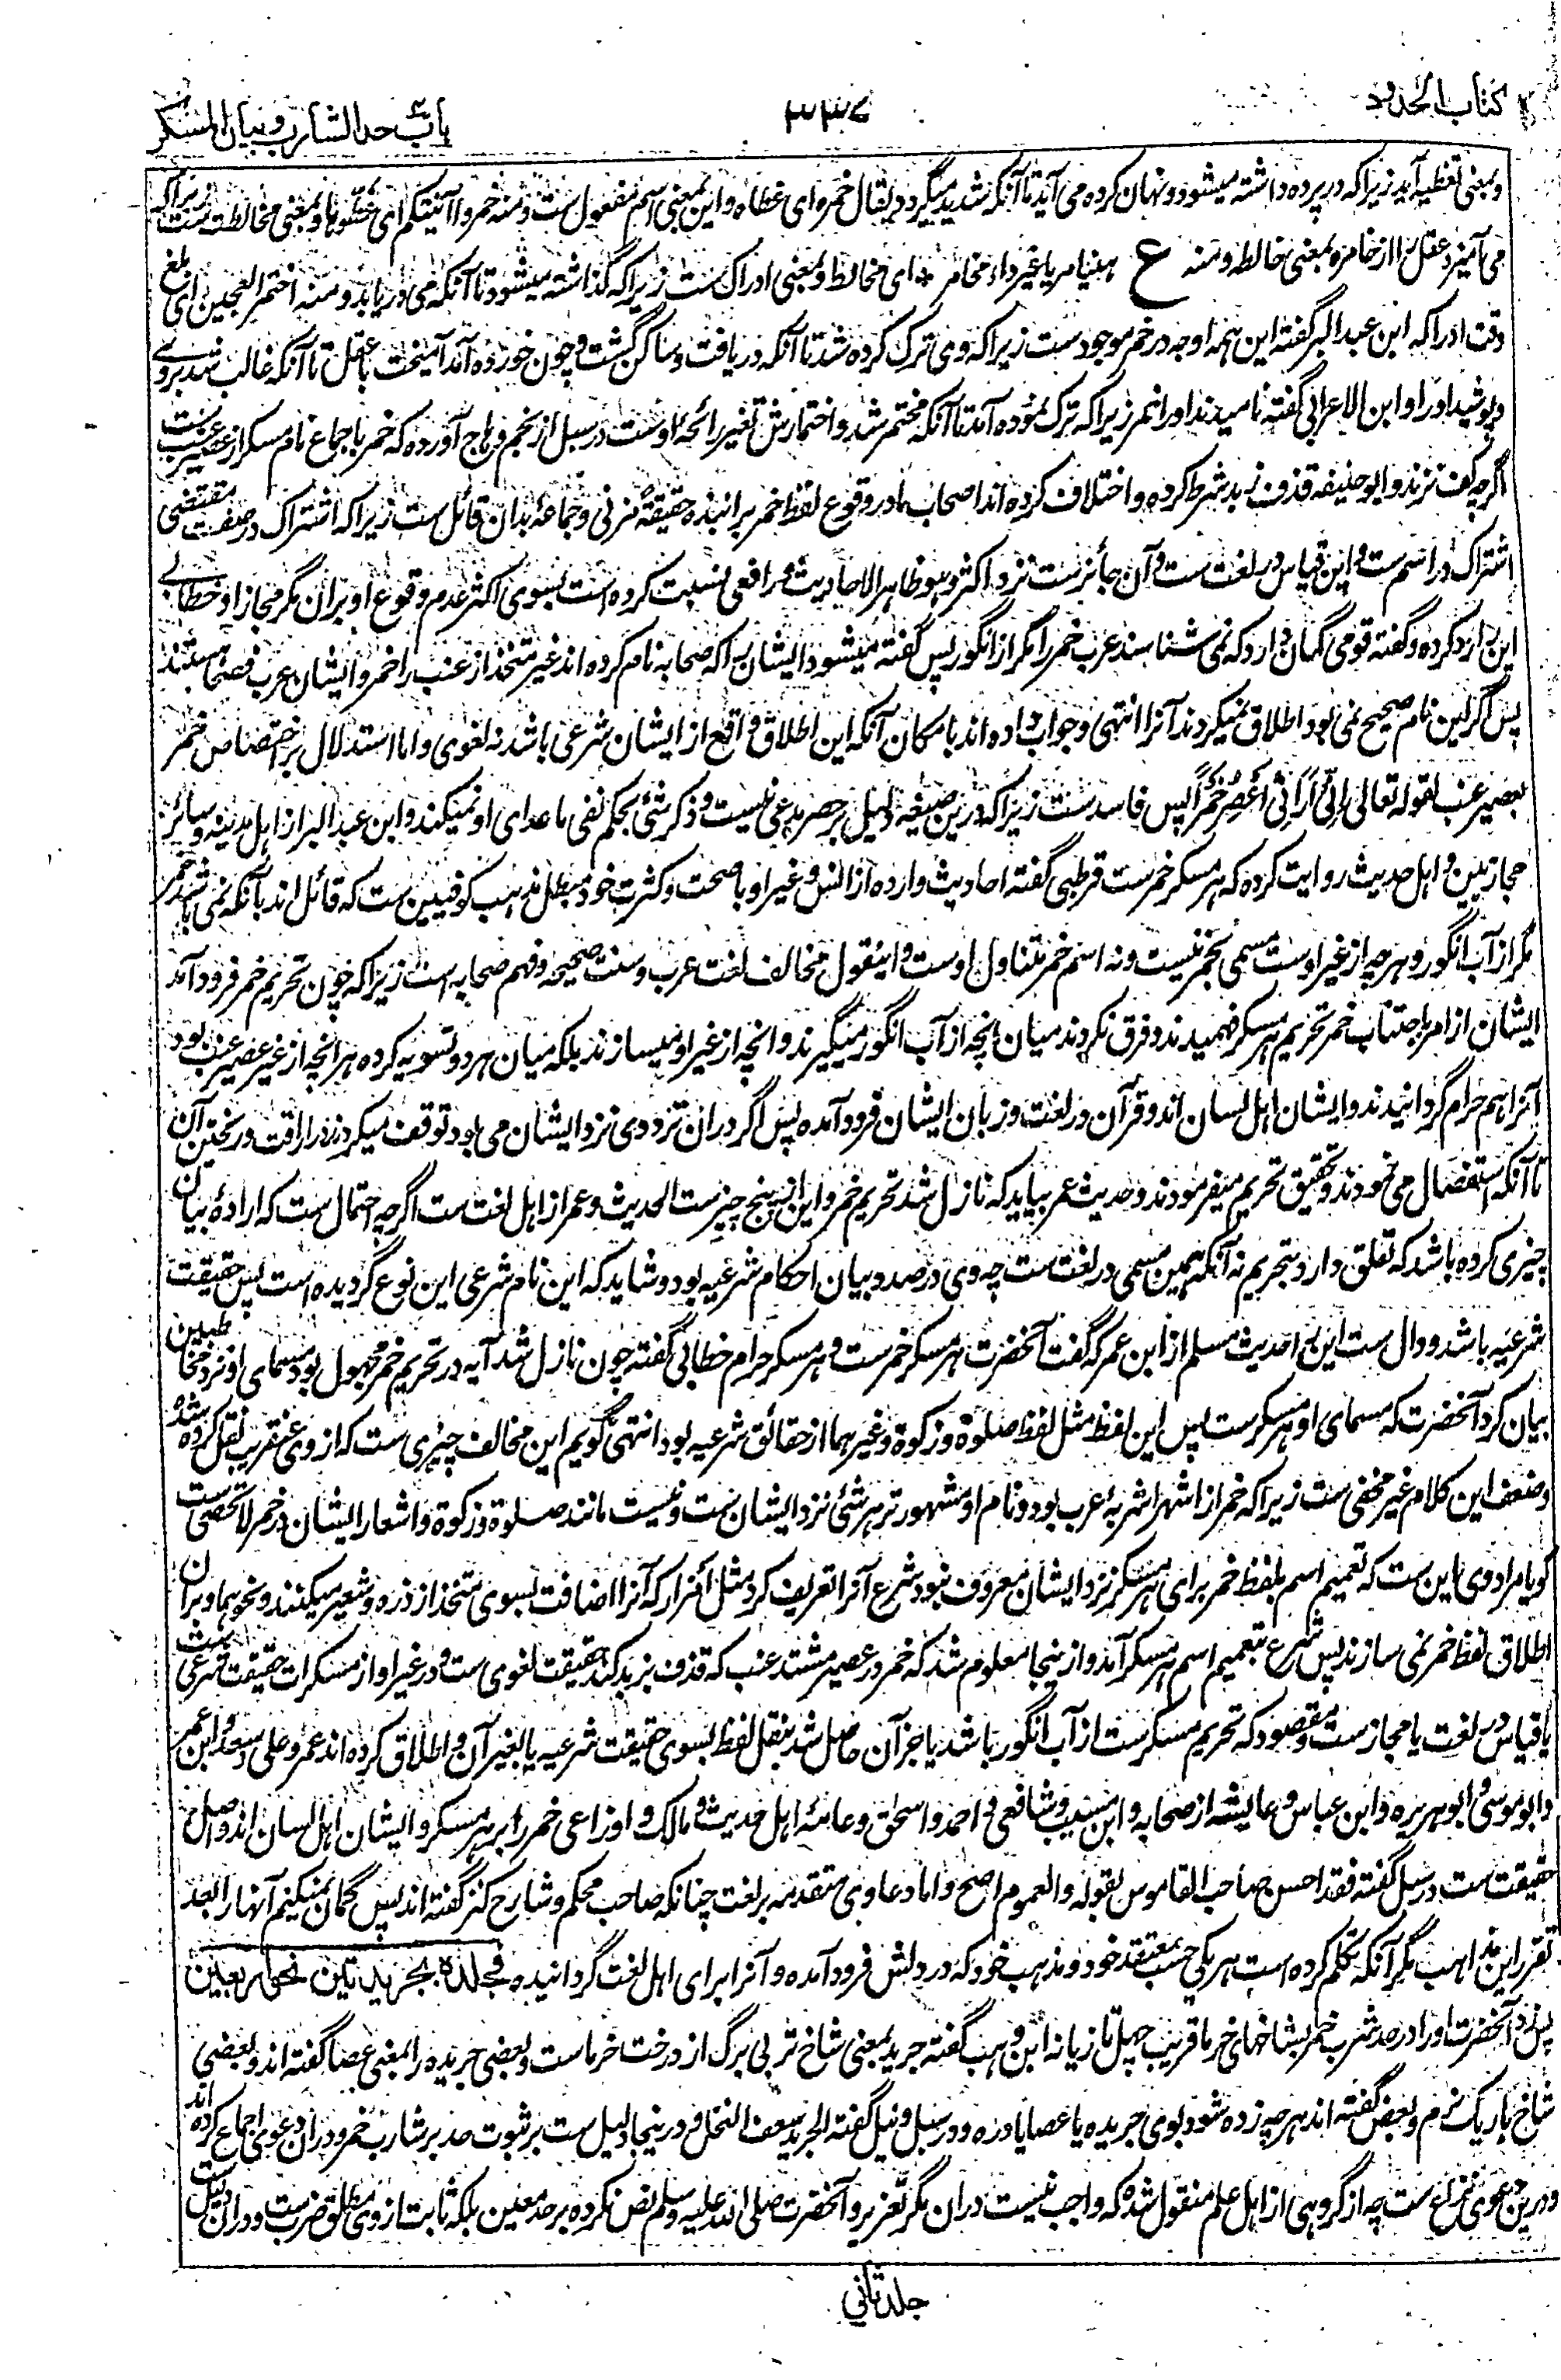 كتاب الحدود
۳۳۷
باب حد الشارب وبيان المسكر
وبمعنی تغطیه آید زیراکه در پرده داشته میشود و نهان کرده می آید تا آنکه شدید میگردد یقال خمره ای غطاه و این بمعنی اسم مفعول ست و منه خمروا آنیتکم ای غطوها و بمعنی مخالطت ست زیراکه
می آمیزد عقل را از خامره بمعنی خالطه و منه ع هنیئا مریئا غیر داء مخامر * ای مخالط و بمعنی ادراک ست زیراکه گذاشته میشود تا آنکه می دریابد و منه اختمر العجین ای بلغ
وقت ادراکه ابن عبد البر گفته این همه اوجه در خمر موجود ست زیراکه وی ترک کرده شد تا آنکه دریافت و ساکن گشت و چون خورده آمد آمیخت با عقل تا آنکه غالب شد بروی
و پوشید او را و ابن الاعرابی گفته نامیدند او را خمر زیراکه ترک نموده آمد تا آنکه مختمر شد و اختمارش تغیر رائحه اوست در سبل از نجم وهاج آورده که خمر باجماع نام مسکر از عصیر عنب ست
اگرچه کف نزند و ابو حنیفه قذف زبد شرط کرده و اختلاف کرده اند اصحاب ما در وقوع لفظ خمر بر انبذه حقیقة مزنی و جماعه بدان قائل ست زیراکه اشتراک در صفت مقتضی
اشتراک در اسم ست و این قیاس در لغت ست و آن جائز ست نزد اکثر و هو ظاهر الاحادیث و رافعی نسبت کرده است بسوی اکثر عدم وقوع او بران مگر مجازا و خطابی
این را رد کرده و گفته قومی گمان دارد که نمی شناسند عرب خمر را مگر از انگور پس گفته میشود ایشان را که صحابه نام کرده اند غیر متخذ از عنب را خمر و ایشان عرب فصحا هستند
پس اگر این نام صحیح نمی بود اطلاق نمیکردند آنرا انتهی و جواب داده اند بامکان آنکه این اطلاق واقع از ایشان شرعی باشد نه لغوی و اما استدلال بر اختصاص خمر
بعصیر عنب لقوله تعالی اِنِّی اَرَانِی اَعْصِرُ خَمْرًا پس فاسد ست زیراکه درین صیغه دلیل بر حصر مدعی نیست و ذکر شئی بحکم نفی ما عدای او نمیکند و ابن عبد البر از اهل مدینه و سائر
حجازیین و اهل حدیث روایت کرده که هر مسکر خمر ست قرطبی گفته احادیث وارده از انس و غیر او با صحت و کثرت خود مبطل مذهب کوفیین ست که قائل اند بآنکه نمی باشد خمر
مگر از آب انگور و هرچه از غیر اوست مسمی بخمر نیست و نه اسم خمر متناول اوست و اینقول مخالف لغت عرب و سنت صحیحه و فهم صحابه است زیراکه چون تحریم خمر فرود آمد
ایشان از امر باجتناب خمر تحریم هر مسکر فهمیدند و فرق نکردند میان آنچه از آب انگور میگیرند و آنچه از غیر او میسازند بلکه میان هر دو تسویه کرده هر آنچه از غیر عصیر عنب بود
آنرا هم حرام گردانیدند و ایشان اهل لسان اند و قرآن در لغت و زبان ایشان فرود آمده پس اگر دران ترددی نزد ایشان می بود توقف میکردند در اراقت و ریختن آن
تا آنکه استفصال می نمودند و تحقیق تحریم میفرمودند و حدیث عمر بیاید که نازل شد تحریم خمر و این از پنج چیز ست الحدیث و عمر از اهل لغت ست اگرچه احتمال ست که اراده بیان
چیزی کرده باشد که تعلق دارد بتحریم نه آنکه همین مسمی در لغت ست چه وی در صدد بیان احکام شرعیه بود و شاید که این نام شرعی این نوع گردیده است پس حقیقت
شرعیه باشد و دال ست این را حدیث مسلم از ابن عمر که گفت آنحضرت هر مسکر خمر ست و هر مسکر حرام خطابی گفته چون نازل شد آیه در تحریم خمر مجهول بود مسمای او نزد مخاطبین
بیان کرد آنحضرت که مسمای او هر مسکر ست پس این لفظ مثل لفظ صلوة و زکوة و غیر هما از حقائق شرعیه بود انتهی گویم این مخالف چیزی ست که از وی عنقریب نقل کرده شد
و ضعف این کلام غیر مخفی ست زیراکه خمر از اشهر اشربه عرب بود و نام او مشهور تر هر شئی نزد ایشان ست و نیست مانند صلوة و زکوة و اشعار ایشان در خمر لا تحصی ست
گویا مراد وی این ست که تعمیم اسم بلفظ خمر برای هر مسکر نزد ایشان معروف نبود شرع آنرا تعریف کرد مثل امزار که آنرا اضافت بسوی متخذ از ذره و شعیر میکنند و نحوهما و بران
اطلاق لفظ خمر نمی سازند پس شرع بتعمیم اسم هر مسکر آمد و ازینجا معلوم شد که خمر در عصیر مشتد عنب که قذف بزبد کند حقیقت لغوی ست و در غیر او از مسکرات حقیقت شرعی ست
یا قیاس در لغت یا مجاز ست و مقصود که تحریم مسکر ست از آب انگور باشد یا جز آن حاصل شد بنقل لفظ بسوی حقیقت شرعیه یا بغیر آن و اطلاق کرده اند عمر و علی و سعد و ابن عمر
و ابو موسی و ابو هریره و ابن عباس و عایشه از صحابه و ابن مسیب و شافعی و احمد و اسحق و عامه اهل حدیث و مالک و اوزاعی خمر را بر هر مسکر و ایشان اهل لسان اند و اصل
حقیقت ست در سبل گفته فقد احسن صاحب القاموس بقوله والعموم اصح و اما دعاوی متقدمه بر لغت چنانکه صاحب محکم و شارح کنز گفته اند پس گمان نمیکنیم آنها را بعد
تقرر این مذاهب مگر آنکه تکلم کرده است هر یکی حسب معتقد خود و مذهب خود که در دلش فرود آمده و آنرا برای اهل لغت گردانیده فجلده بجريدتين نحو اربعين
پس زد آنحضرت او را در حد شرب خمر بشاخهای خرما قریب چهل تازیانه ابن وهب گفته جرید بمعنی شاخ تر بی برگ از درخت خرما ست و بعضی جریده را بمعنی عصا گفته اند و بعضی
شاخ باریک نرم و بعض گفته اند هرچه زده شود بوی جریده یا عصا یا دره و در سبل و نیل گفته الجرید سعف النخل و درینجا دلیل ست بر ثبوت حد بر شارب خمر و دران دعوی اجماع کرده اند
و درین دعوی نزاع ست چه از گروهی از اهل علم منقول شده که واجب نیست دران مگر تعزیر و آنحضرت صلی الله علیه وسلم نص نکرده بر حد معین بلکه ثابت از وی مطلق ضرب ست و دران دلیل ست
جلد ثانی